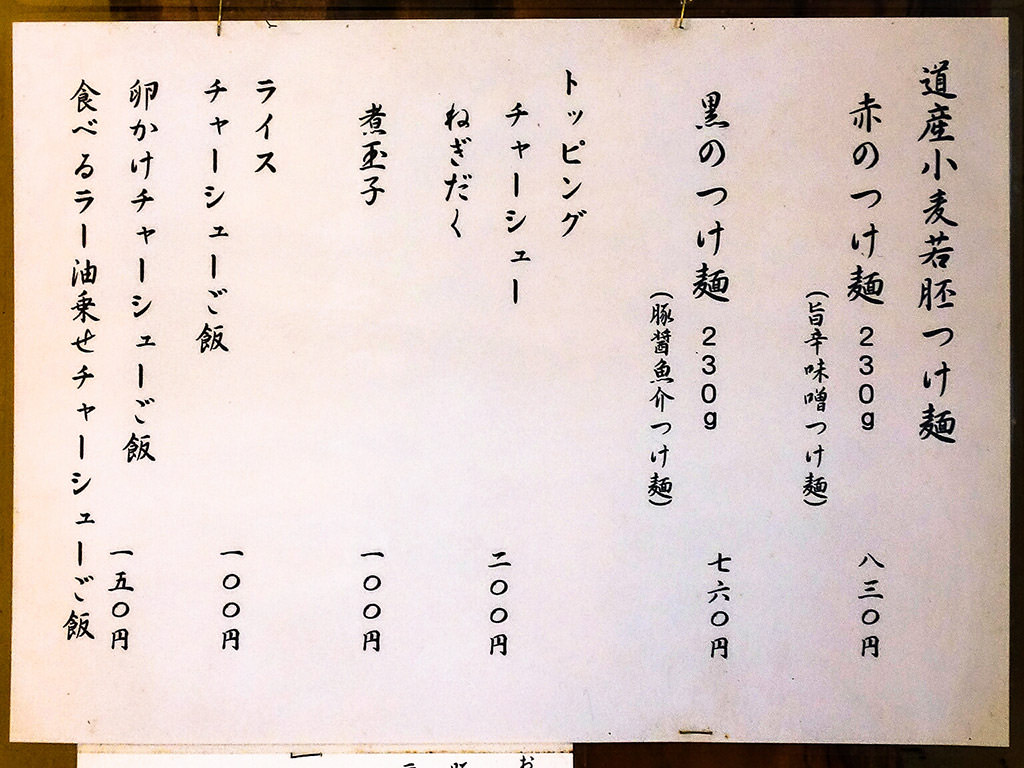 道産小麦若胚つけ麺
赤のつけ麺 230g 八三〇円
(旨辛味噌つけ麺)
黒のつけ麺 230g 七六〇円
(豚醤魚介つけ麺)
トッピング
チャーシュー
ねぎだく 二〇〇円
煮玉子 一〇〇円
ライス
チャーシューご飯 一〇〇円
卵かけチャーシューご飯 一五〇円
食べるラー油乗せチャーシューご飯
お